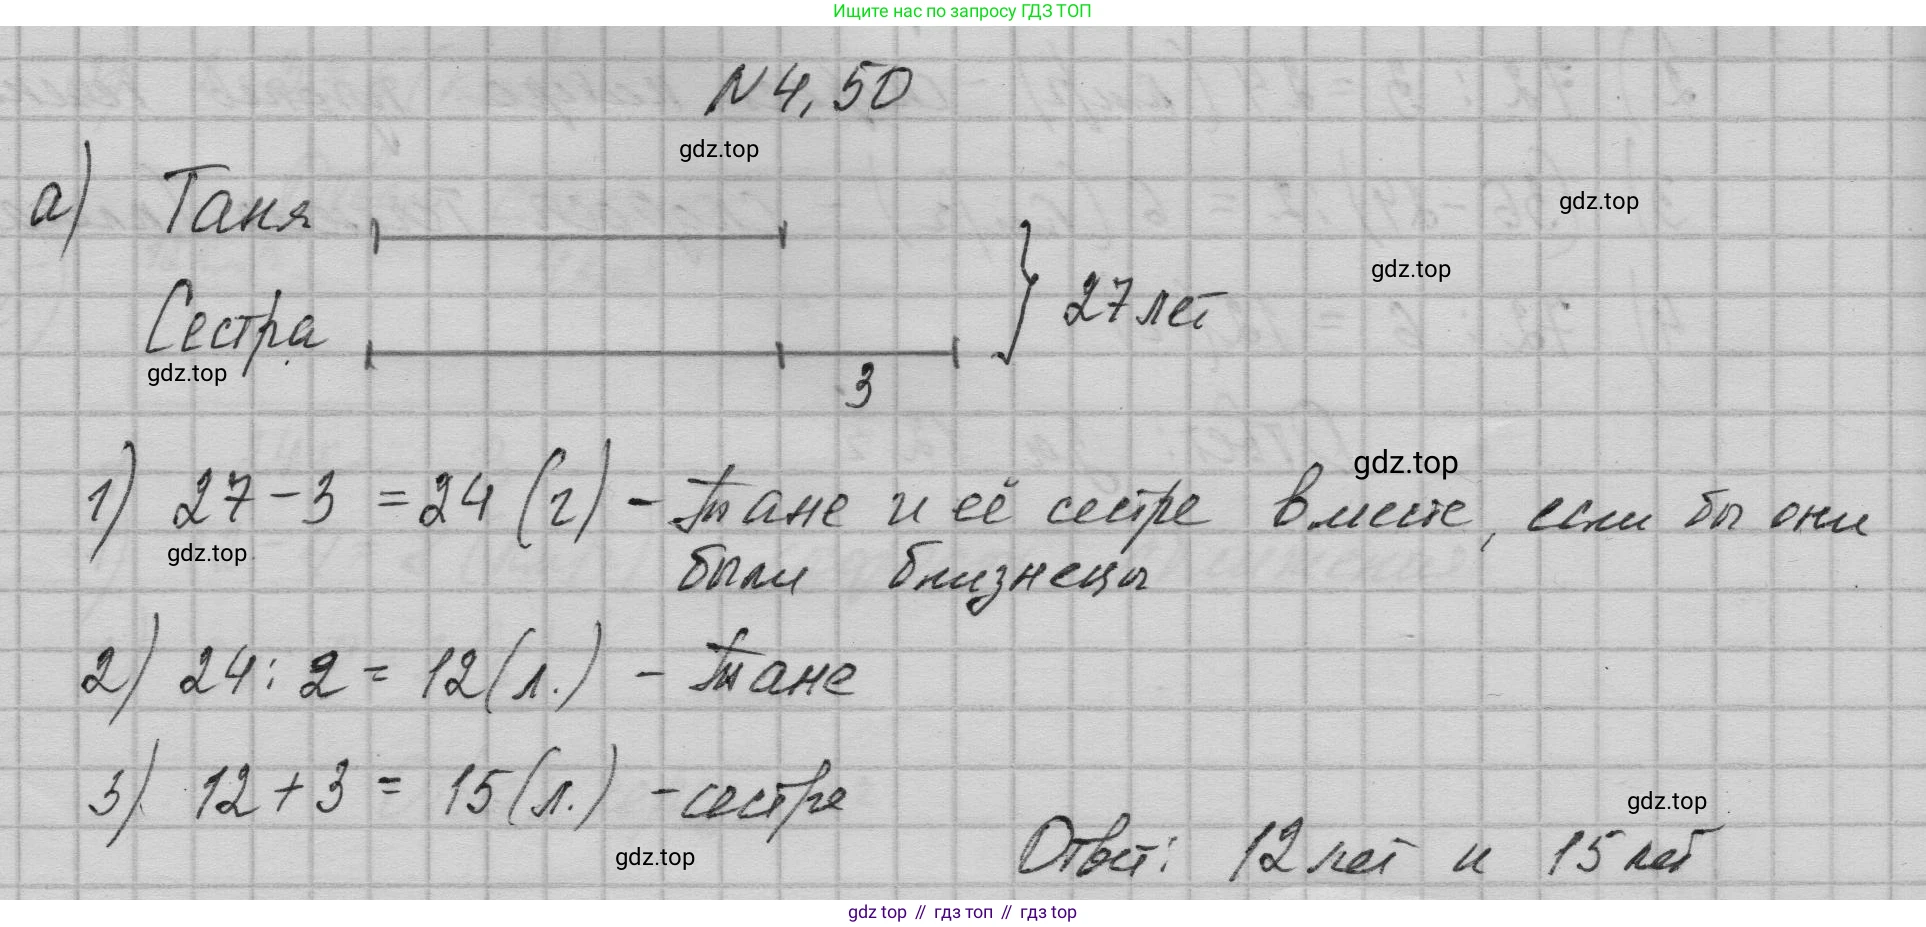 Ищите нас по запросу ГДЗ ТОП
N 4, 50
gdz.top
а) Таня
gdz.top
gdz.top
Сестра
27 лет
gdz.top
3
gdz.top
1) 27 - 3 = 24 (г) - Тане и её сестре вместе, если бы они
gdz.top
были близнецы
2) 24 : 2 = 12 (л.) - Тане
3) 12 + 3 = 15 (л.) - сестре
gdz.top
gdz.top
Ответ: 12 лет и 15 лет
gdz top // гдз топ // гдз top